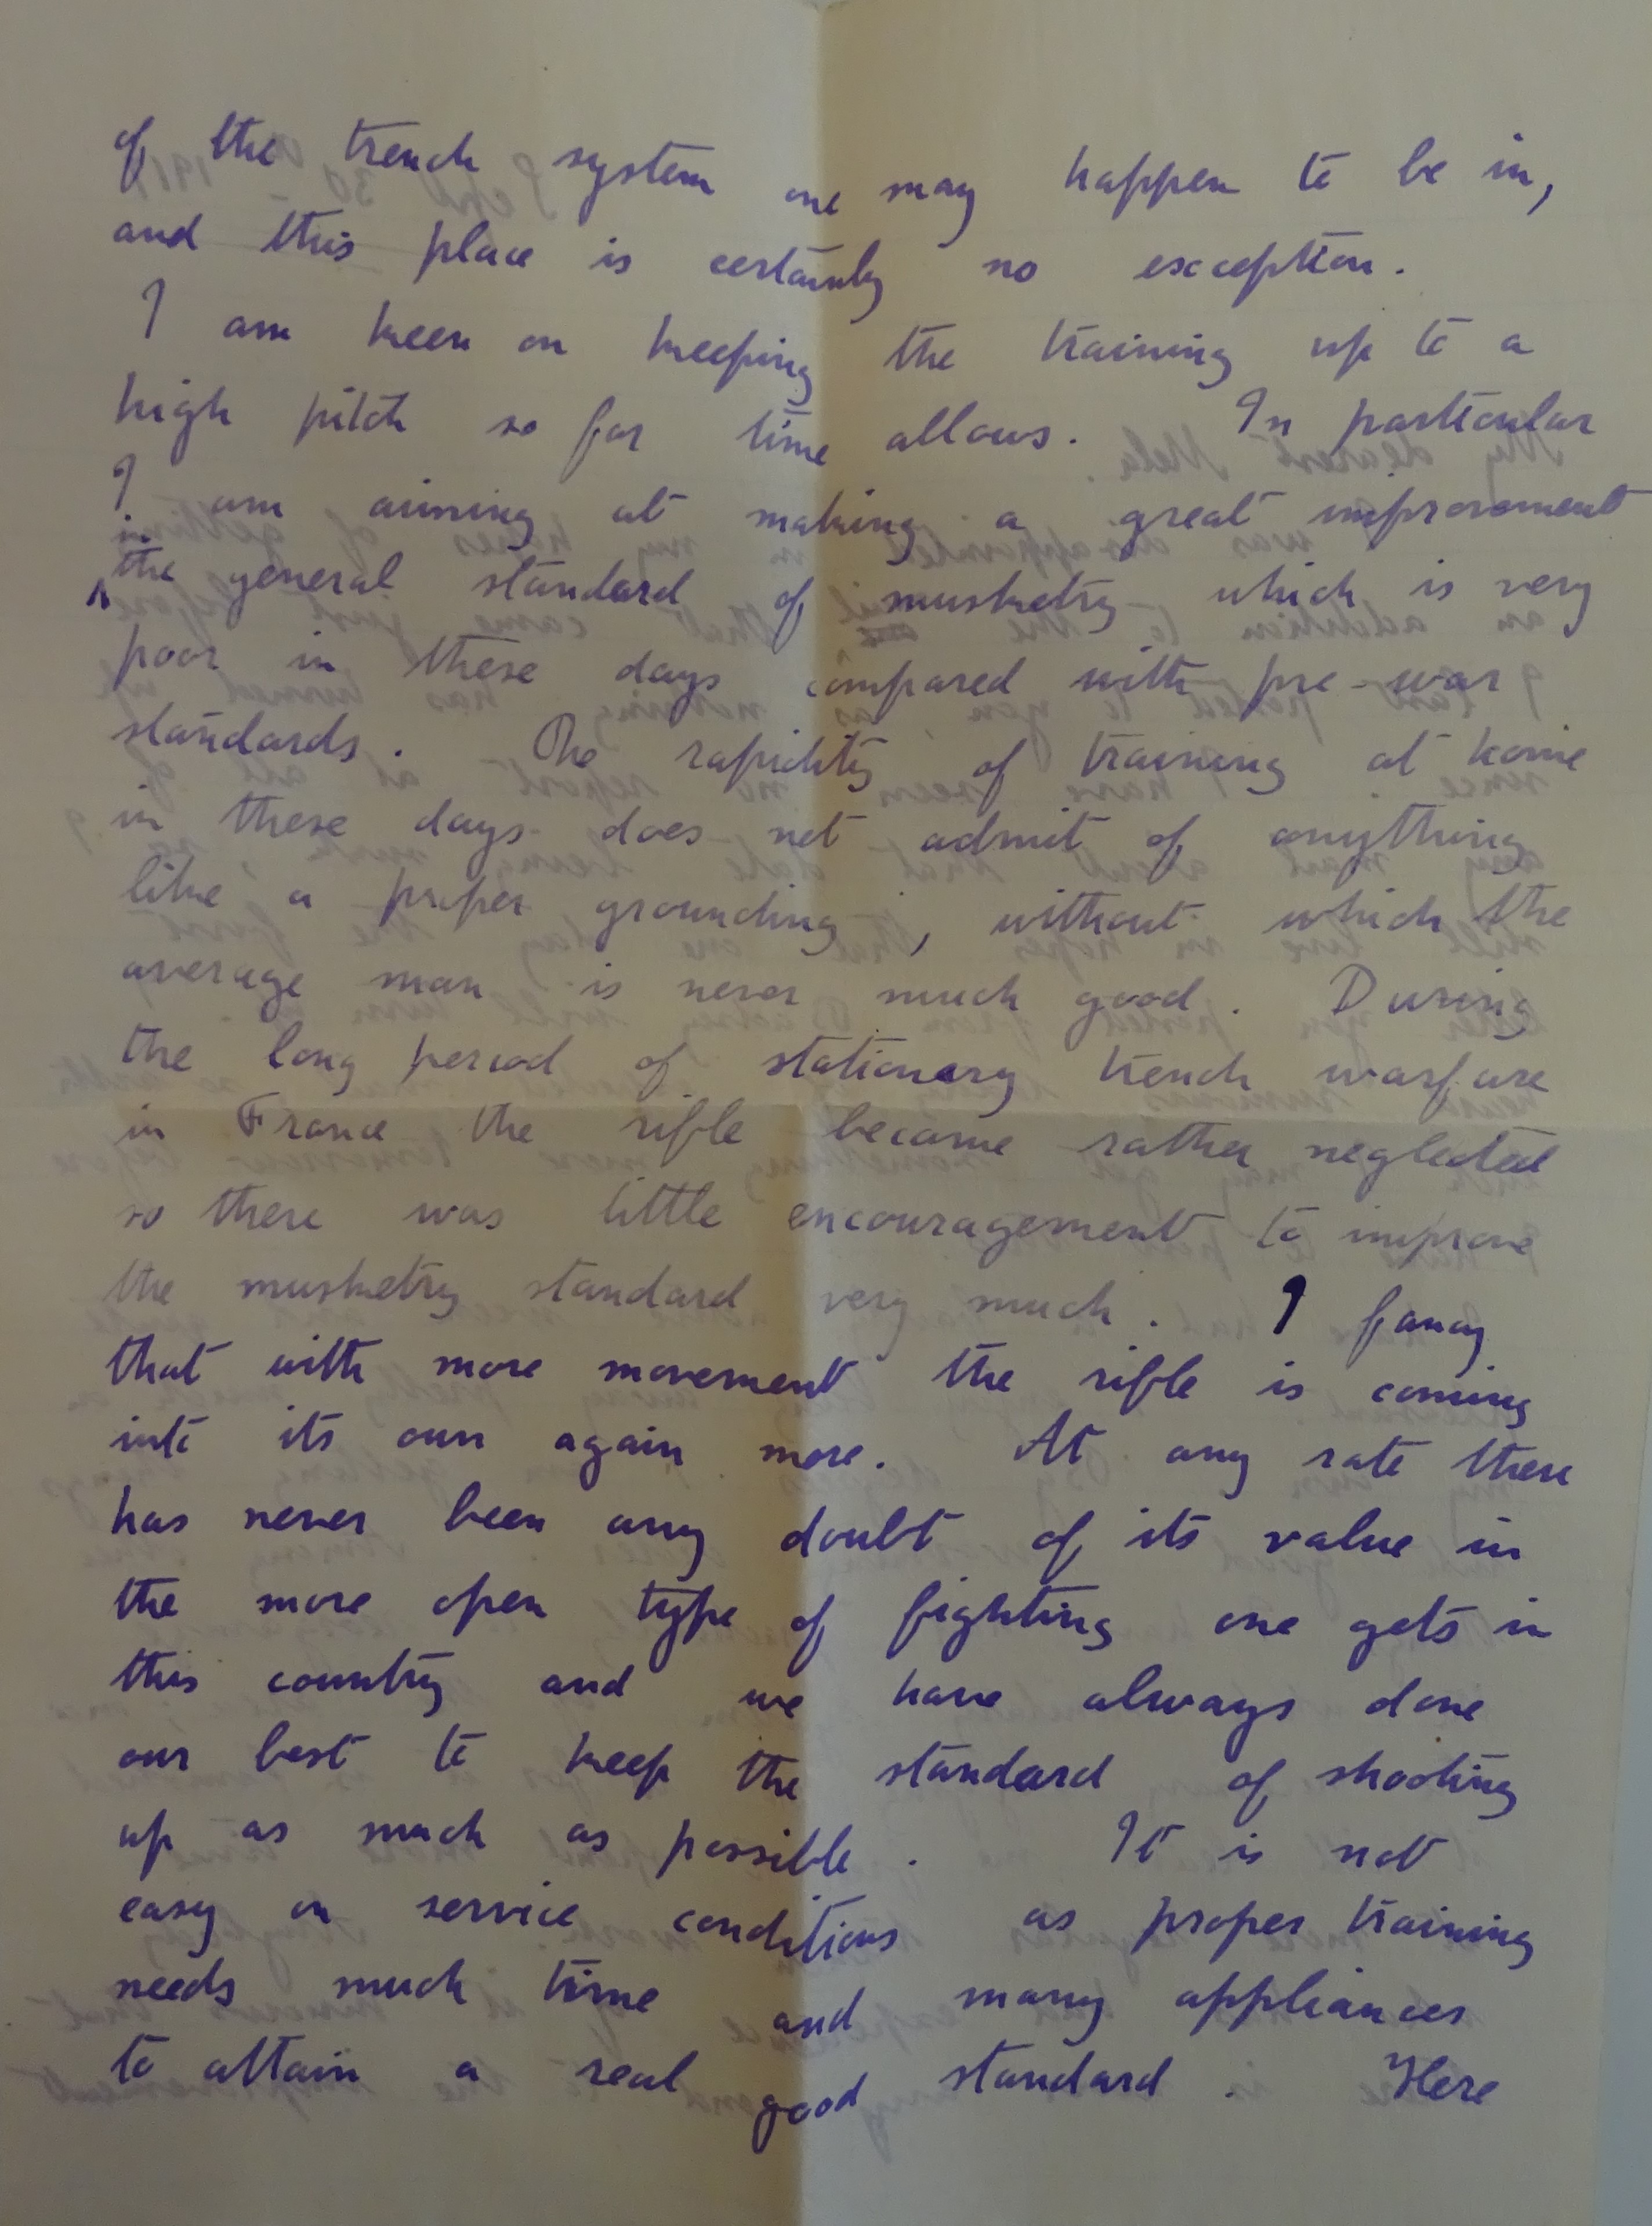 of the trench system one may happen to be in,
and this place is certainly no exception.
I am keen on keeping the training up to a
high pitch so far time allows. In particular
I am aiming at making a great improvement
in
^ the general standard of musketry which is very
poor in these days compared with pre-war
standards. The rapidity of training at home
in these days does not admit of anything
like a proper grounding, without which the
average man is never much good. During
the long period of stationary trench warfare
in France the rifle became rather neglected
so there was little encouragement to improve
the musketry standard very much. I fancy
that with more movement the rifle is coming
into its own again more. At any rate there
has never been any doubt of its value in
the more open type of fighting one gets in
this country and we have always done
our best to keep the standard of shooting
up as much as possible. It is not
easy on service conditions as proper training
needs much time and many appliances
to attain a real good standard. Here